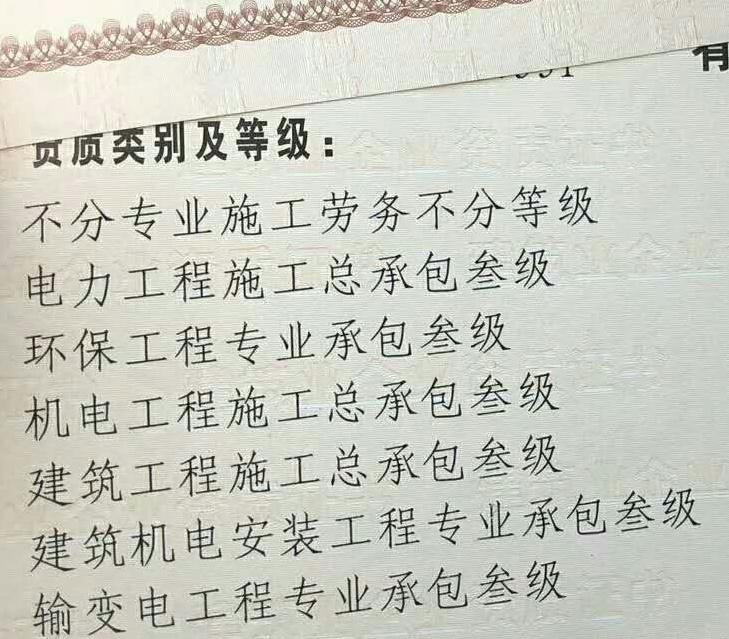 有
资质类别及等级：
不分专业施工劳务不分等级
电力工程施工总承包叁级
环保工程专业承包叁级
机电工程施工总承包叁级
建筑工程施工总承包叁级
建筑机电安装工程专业承包叁级
输变电工程专业承包叁级